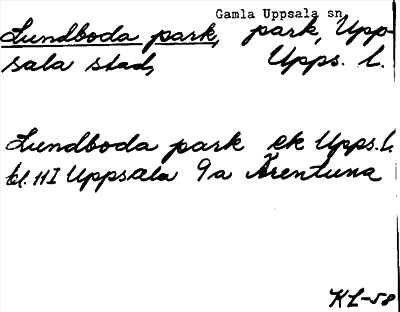 Gamla Uppsala sn
Lundboda park, park, Upp-
sala stad, Upps. l.
Lundboda park ek Upps. l.
bl. 11 I Uppsala 9a Ärentuna
KL-58